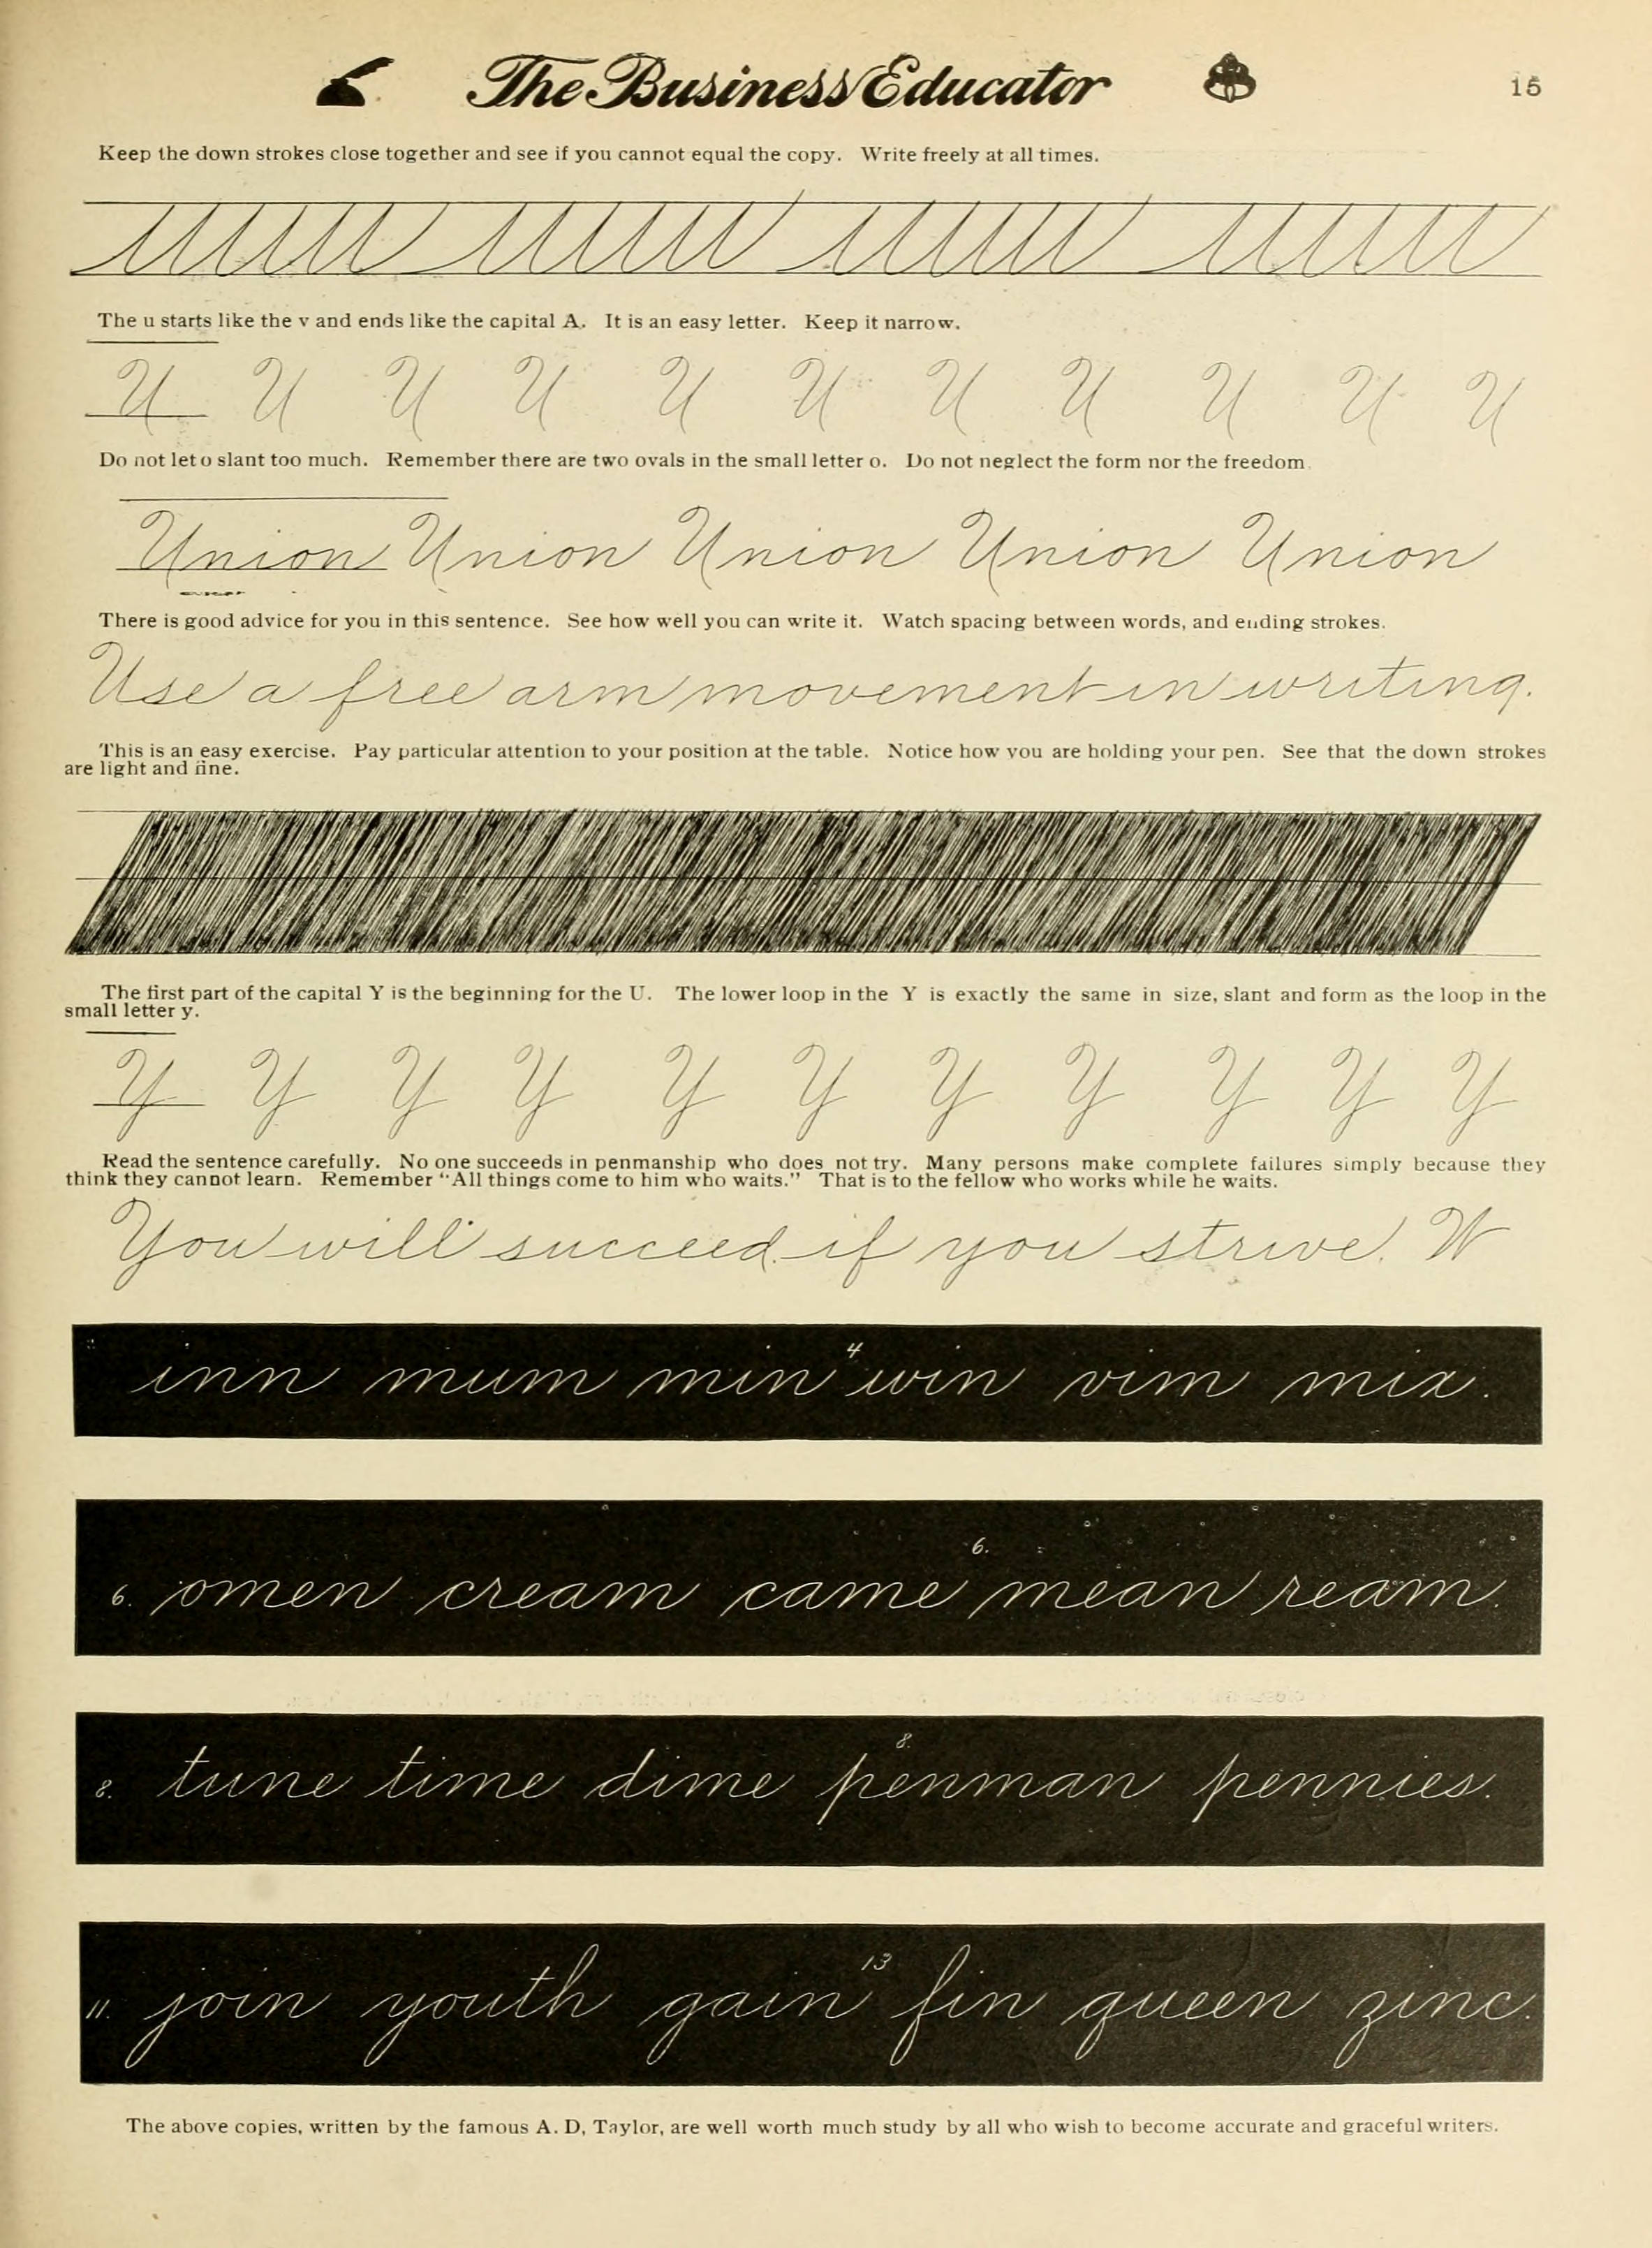 The Business Educator 15
Keep the down strokes close together and see if you cannot equal the copy. Write freely at all times.
The u starts like the v and ends like the capital A. It is an easy letter. Keep it narrow.
U U U U U U U U U U U
Do not let o slant too much. Remember there are two ovals in the small letter o. Do not neglect the form nor the freedom.
Union Union Union Union Union
There is good advice for you in this sentence. See how well you can write it. Watch spacing between words, and ending strokes.
Use a free arm movement in writing.
This is an easy exercise. Pay particular attention to your position at the table. Notice how you are holding your pen. See that the down strokes
are light and fine.
The first part of the capital Y is the beginning for the U. The lower loop in the Y is exactly the same in size, slant and form as the loop in the
small letter y.
Y Y Y Y Y Y Y Y Y Y Y
Read the sentence carefully. No one succeeds in penmanship who does not try. Many persons make complete failures simply because they
think they cannot learn. Remember "All things come to him who waits." That is to the fellow who works while he waits.
You will succeed if you strive. W
inn mum min 4 win vim mix.
6. omen cream came 6. mean ream.
8. tune time dime 8. penman pennies.
11. join youth gain 13 fin queen zinc.
The above copies, written by the famous A. D. Taylor, are well worth much study by all who wish to become accurate and graceful writers.